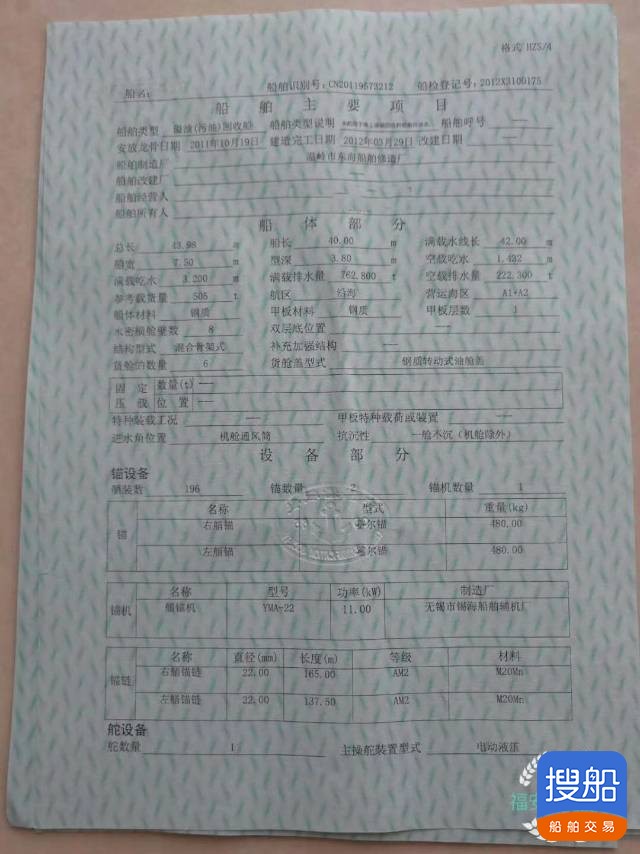 格式 HZS/4
船名: 船舶识别号:CN20119573212 船检登记号:2012X3100175
船 舶 主 要 项 目
船舶类型 溢油(污油)回收船 船舶类型说明 船舶呼号 —
安放龙骨日期 2011年10月19日 建造完工日期 2012年05月29日 改建日期 —
船舶制造厂 温岭市东海船舶修造厂
船舶改建厂 —
船舶经营人
船舶所有人
船 体 部 分
总长 43.98 m 船长 40.00 m 满载水线长 42.00 m
船宽 7.50 m 型深 3.80 m 空载吃水 1.422 m
满载吃水 3.200 m 满载排水量 762.800 t 空载排水量 222.300 t
参考载货量 505 t 航区 沿海 营运海区 A1+A2
船体材料 钢质 甲板材料 钢质 甲板层数 1
水密横舱壁数 8 双层底位置 —
结构型式 混合骨架式 补充加强结构 —
货舱的数量 6 货舱盖型式 钢质转动式油舱盖
固定 数量(t) —
压载 位置 —
特种装载工况 — 甲板特种载荷或装置 —
进水角位置 机舱通风筒 抗沉性 一舱不沉(机舱除外)
设 备 部 分
锚设备
舾装数 196 锚数量 2 锚机数量 1
锚 名称 型式 重量(kg)
右艏锚 霍尔锚 480.00
左艏锚 霍尔锚 480.00
锚机 名称 型号 功率(kW) 制造厂
艏锚机 YMA-22 11.00 无锡市锡海船舶辅机厂
锚链 名称 直径(mm) 长度(m) 等级 材料
右艏锚链 22.00 165.00 AM2 M20Mn
左艏锚链 22.00 137.50 AM2 M20Mn
舵设备
舵数量 1 主操舵装置型式 电动液压
福安
搜船
船舶交易